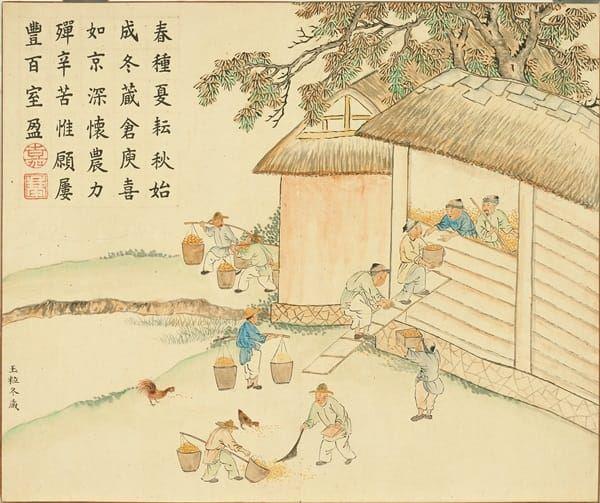 春種夏耘秋始
成冬藏倉庾喜
如京深懷農力
殫辛苦惟願屢
豐百室盈
嘉
玉粒冬藏